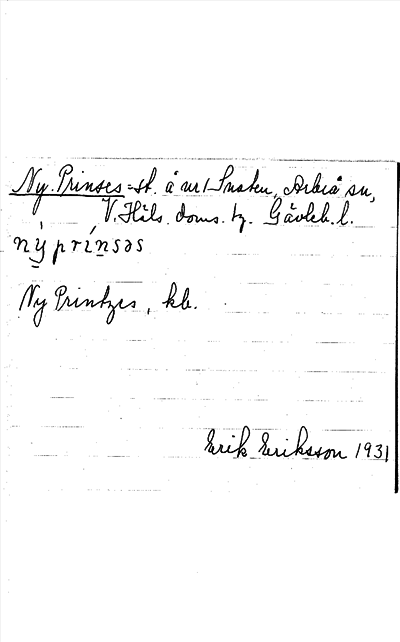 Ny. Prinses =st. å nr 1 Snaten, Arbrå sn,
V. Häls. doms. tg. Gävleb. l.
nỳ prínsəs
Ny Printzes, kb.
Erik Eriksson 1931